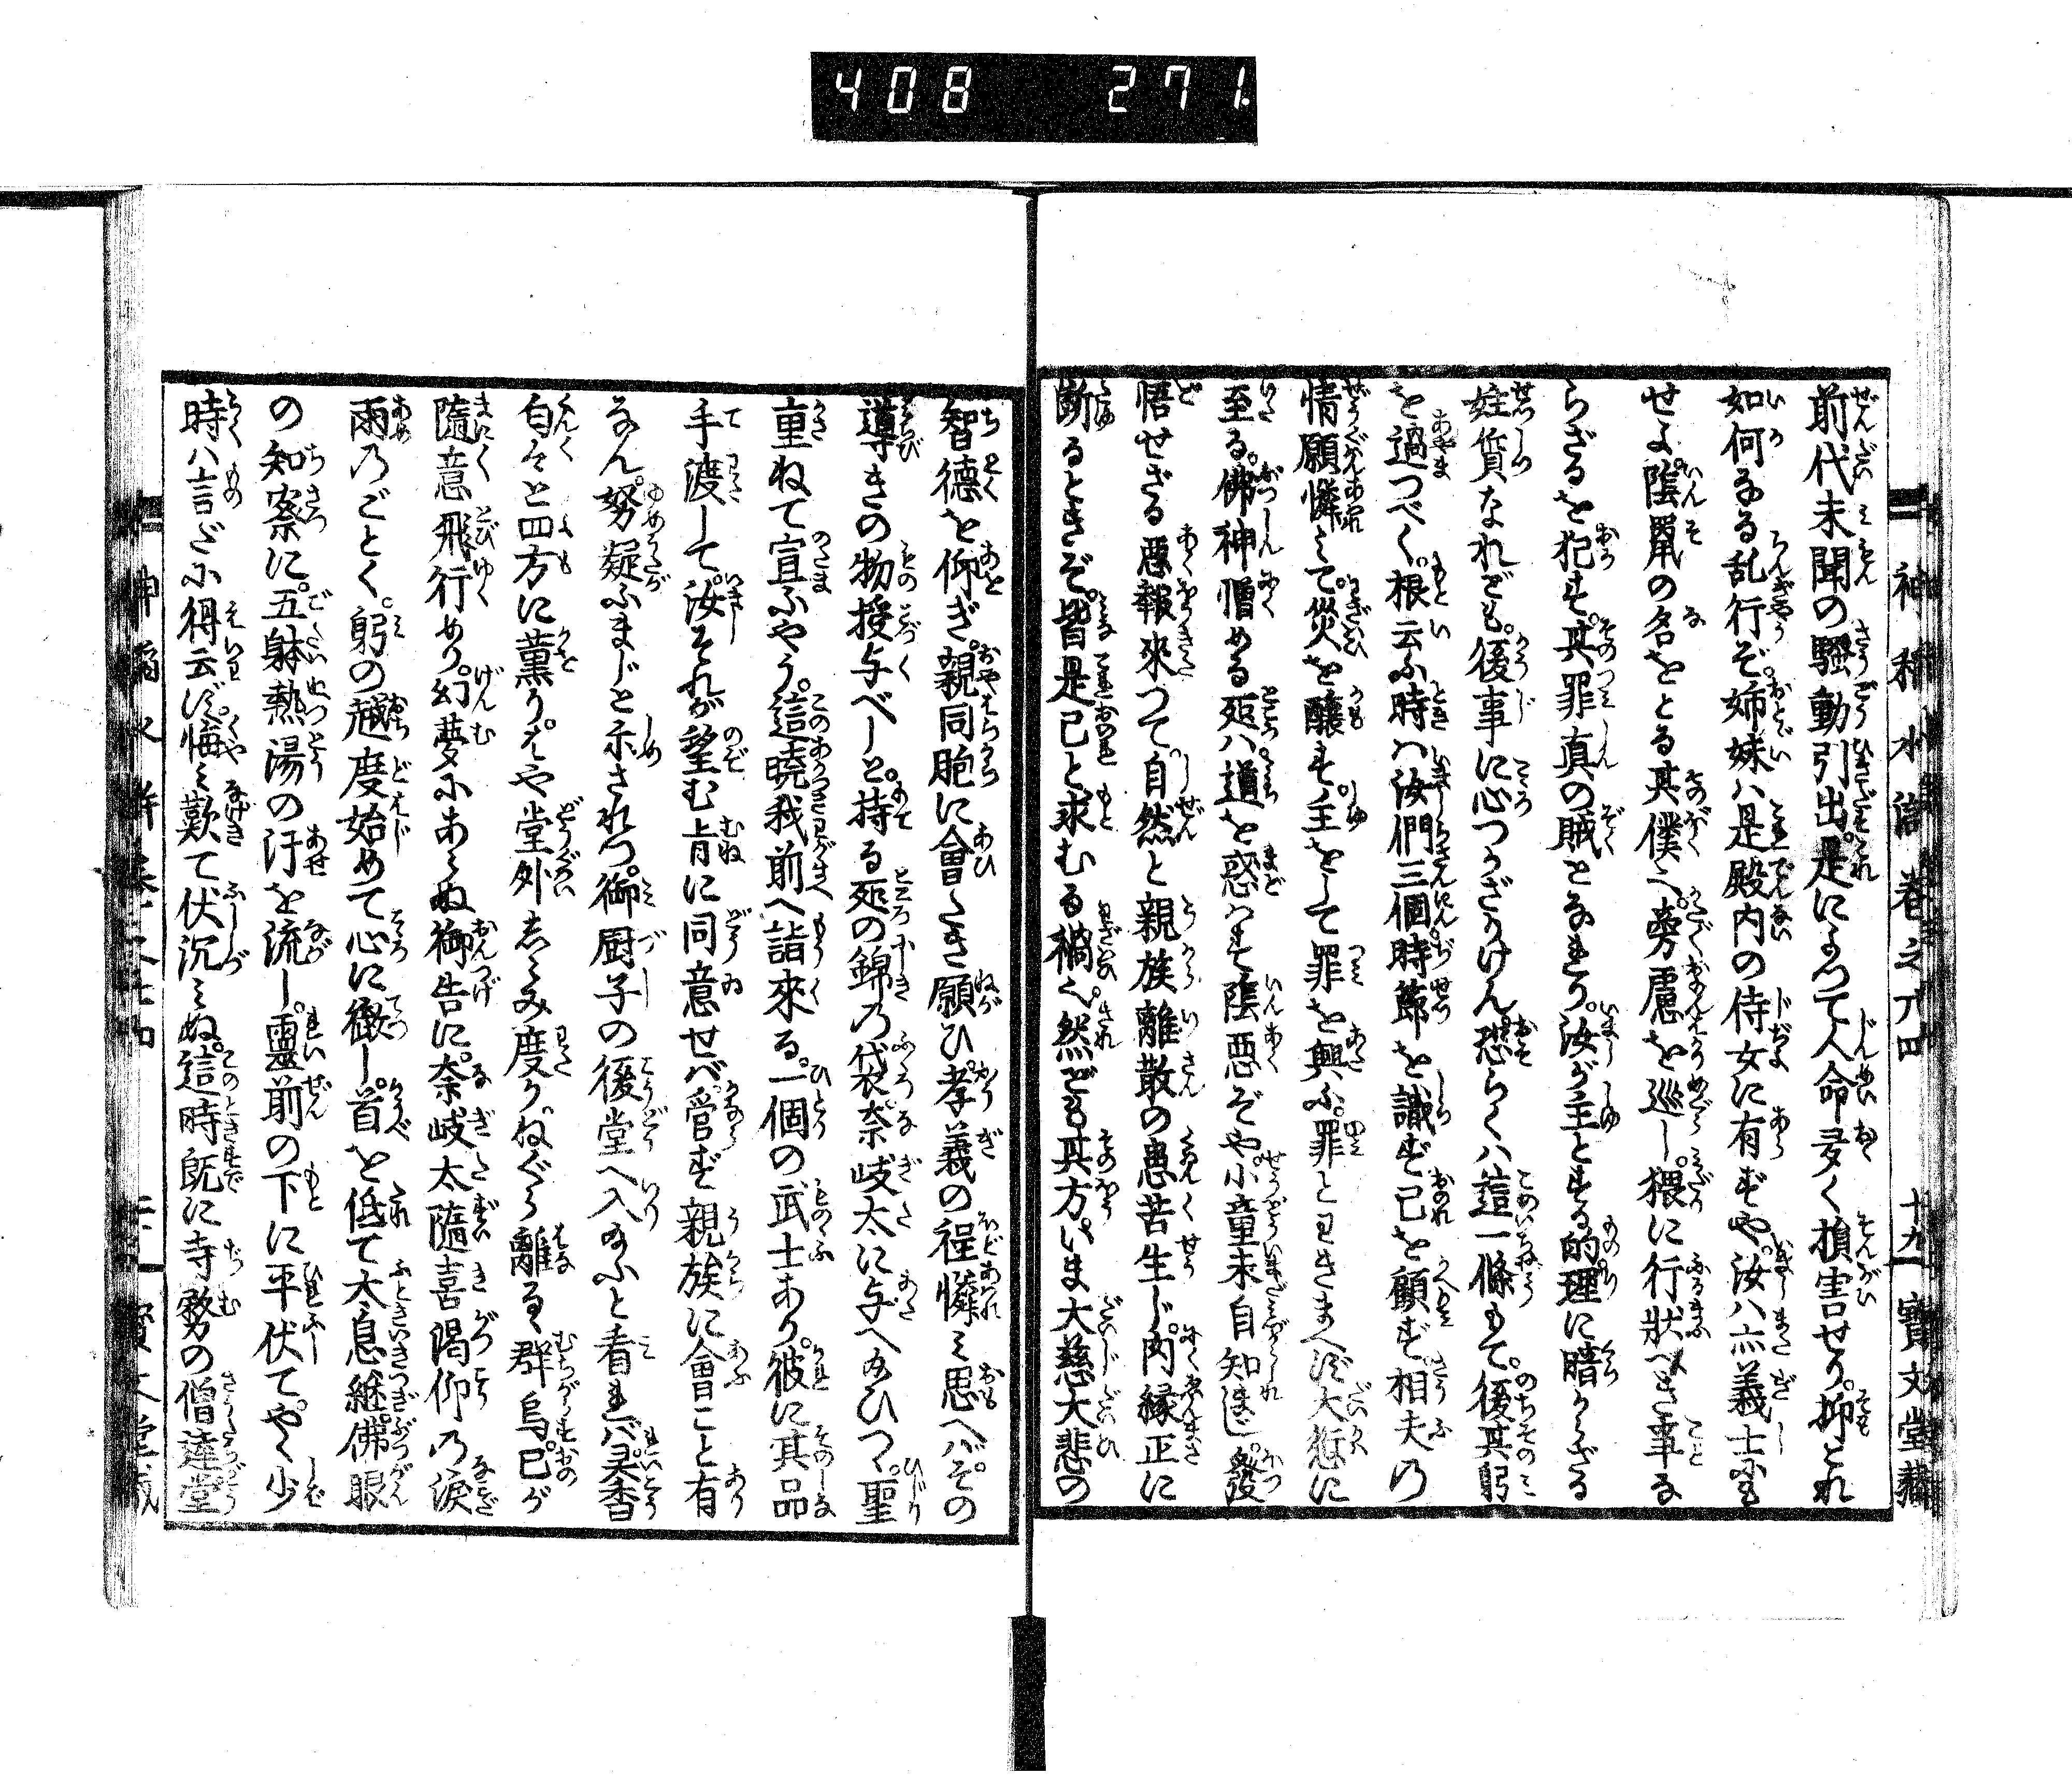 408 271
前代未聞の騒動引出。是によつて人命多く損害せり。抑とれ
如何なる乱行ぞ。姉妹ハ是殿内の侍女に有ずや。汝ハ亦義士にも
せよ陰鼠の名をとる其僕へ。旁慮を巡し。猥に行状べき事な
らざるを犯す。其罪真の賊となまり。汝が主とする的理に暗からざる
性質なれども。後事に心つかざりけん。恐らくハ這一條もて。後其躬
を過つべく。根云ふ時ハ汝們三個時節を識ず己を顧ず相夫の
情願憐みて。災を醸す。主をして罪を興ふ。罪とわきまへず大惡に
至る。佛神憎める処ハ道を惑はす陰悪ぞや。小童未自知まじ。發
悟せざる悪報來つて。自然と親族離散の患苦生じ。内縁正に
断るときぞ。皆是己と求むる禍へ。然ども其方いま大慈大悲の
智徳を仰ぎ。親同胞に會たき願ひ孝義の程憐み思へバぞの
導きの物授与べしと。持る処の錦の袋奈岐太に与へ給ひつ。聖
重ねて宣ふやう。這曉我前へ詣來る。一個の武士あり。彼に其品
手渡して。汝それが望む旨に同意せバ。必ず親族に會こと有
なん。努疑ふまじと示されつ。御厨子の後堂へ入給ふと看まバ。灵香
匂々と四方に薫り。はや堂外しらみ度りねぐら離るゝ群烏。己が
隨意飛行めり。幻夢にあらぬ御告に。奈岐太隨喜渇仰の涙
雨のごとく。躬の越度始めて心に徹し。首を低て大息継。佛眼
の知察に。五躰熱湯の汗を流し。靈前の下に平伏て。やゝ少
時ハ言だに得云ず。悔み歎て伏沉みぬ。這時既に寺務の僧達堂
神稲水滸 巻之 十四 十九 寶文堂藏